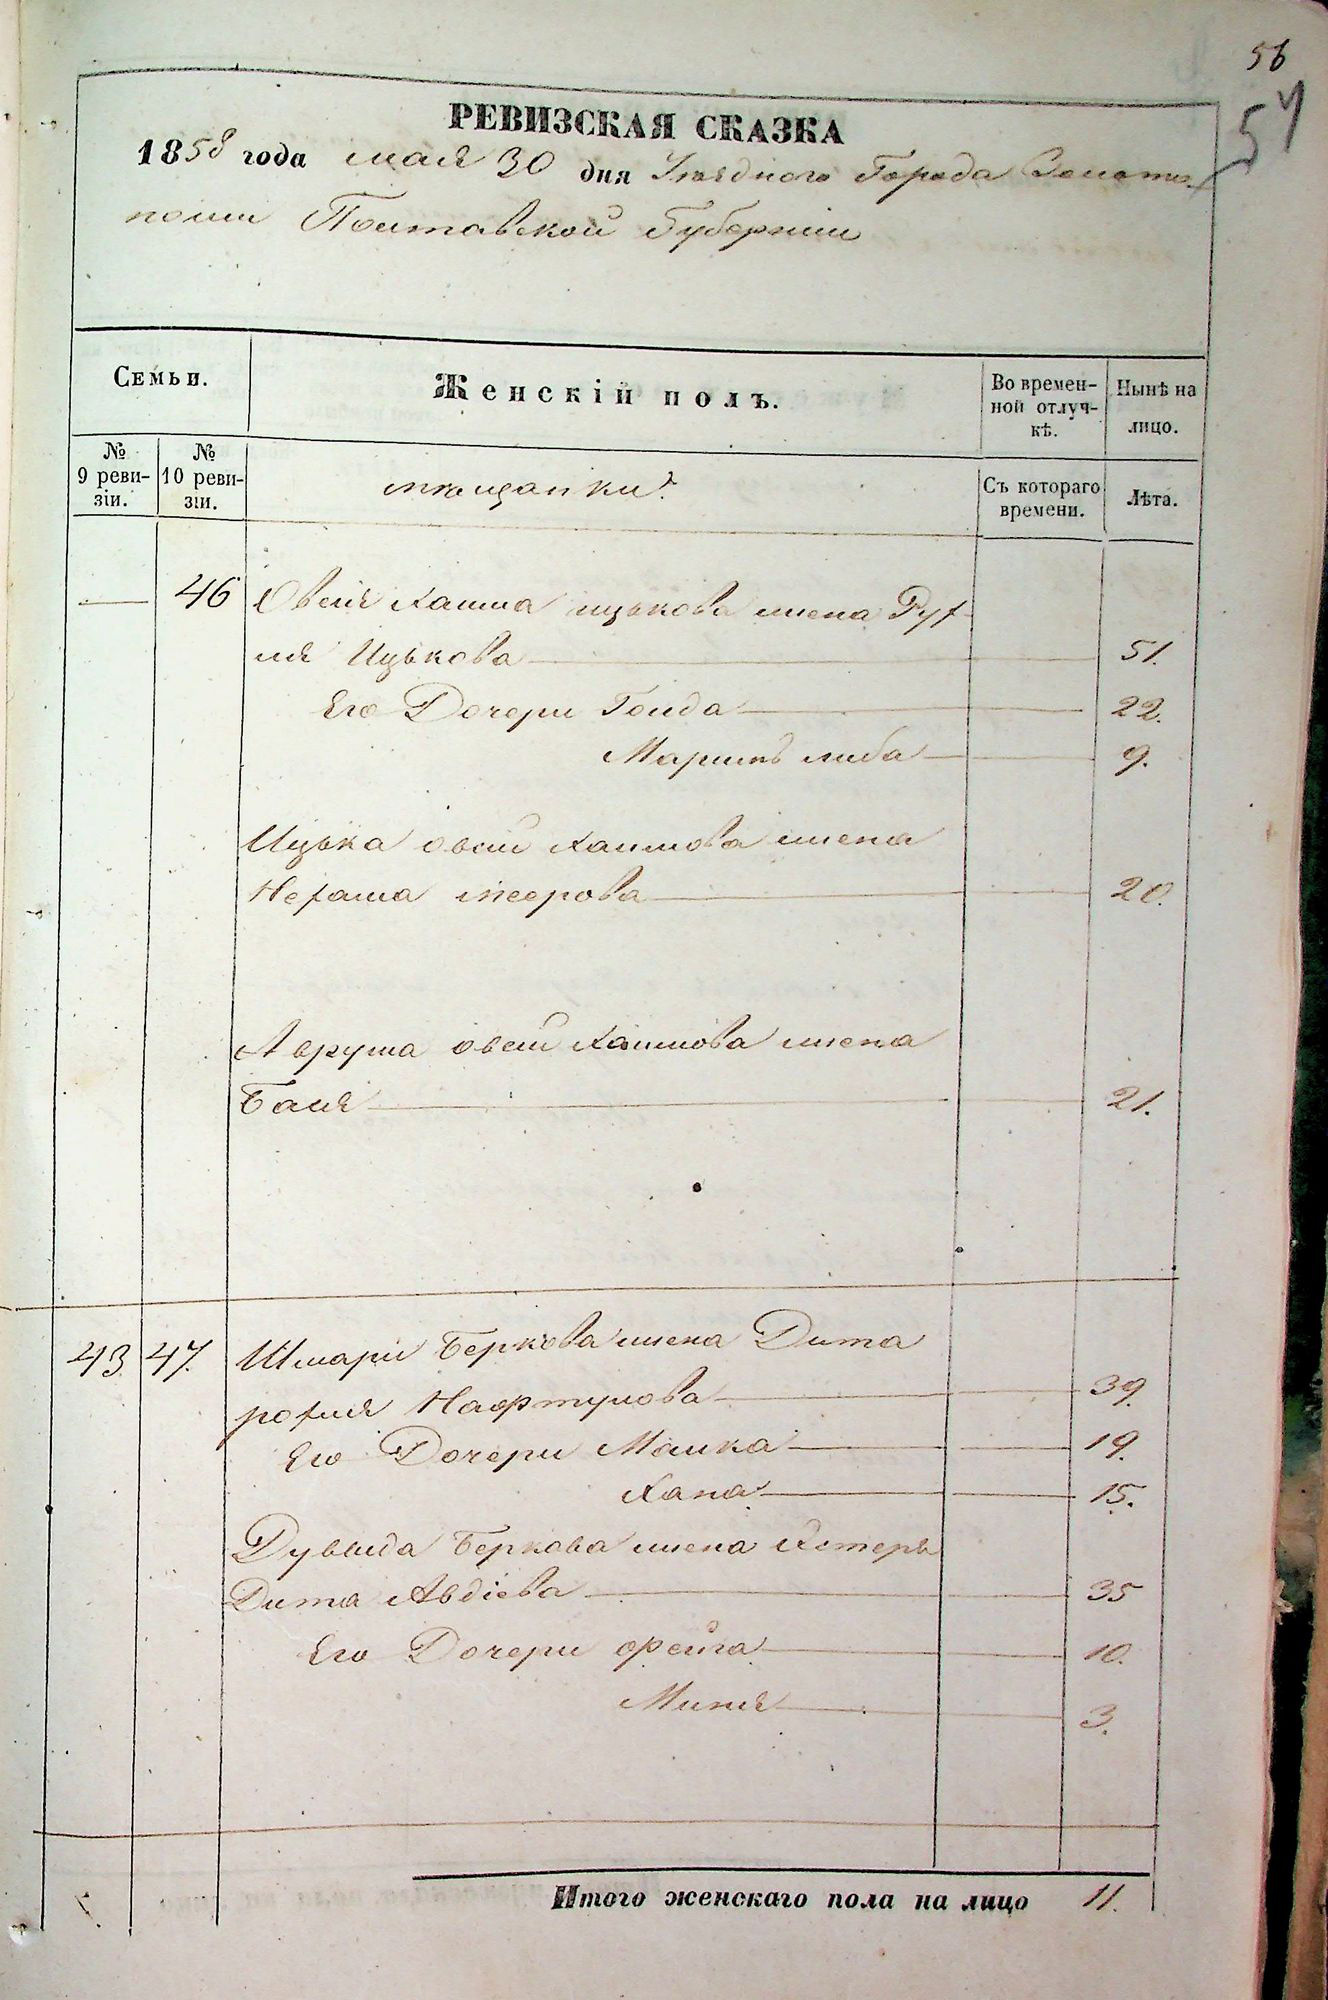 56
57
РЕВИЗСКАЯ СКАЗКА
1858 года мая 30 дня Уѣзднаго Города Золото-
ноши Полтавской Губерніи
Семьи.
Женскій полъ.
Во времен-
ной отлуч-
кѣ.
Нынѣ на
лицо.
№
9 реви-
зіи.
№
10 реви-
зіи.
мѣщанки
Съ котораго
времени.
Лѣта.
— 46 Овсія Хаима ицькова жена Рух-
ля Ицькова 51.
Его Дочери Голда 22.
Маримъ либа 9.
Ицька овсій Хаимова жена
Нехама меерова 20.
Аврума овсій Хаимова жена
Бася 21.
43 47. Шмарія Беркова жена Дита
рохля Нафтулова 39.
Его Дочери Малка 19.
Хана 15.
Дувыда Беркова жена Естеръ
Дита Авдіева 35
Его Дочери фейга 10.
Миня 3.
Итого женскаго пола на лицо 11.